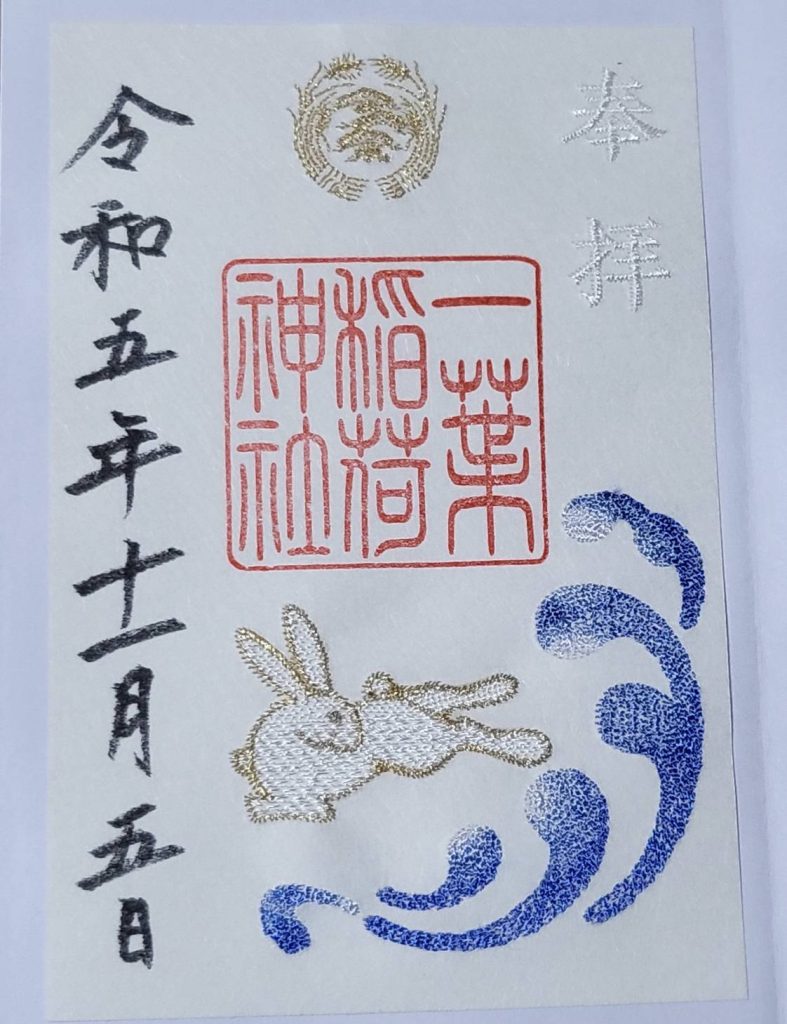 奉拝
一葉
稲荷
神社
令和五年十一月五日